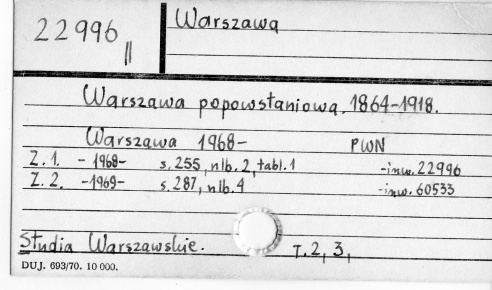 22996 II
Warszawa
Warszawa popowstaniowa. 1864-1918.
Warszawa 1968- PWN
Z. 1. - 1968- s. 255, nlb. 2, tabl. 1 -inw. 22996
Z. 2. -1969- s. 287, nlb. 4 -inw. 60533
Studia Warszawskie. T. 2, 3,
DUJ. 693/70. 10 000.